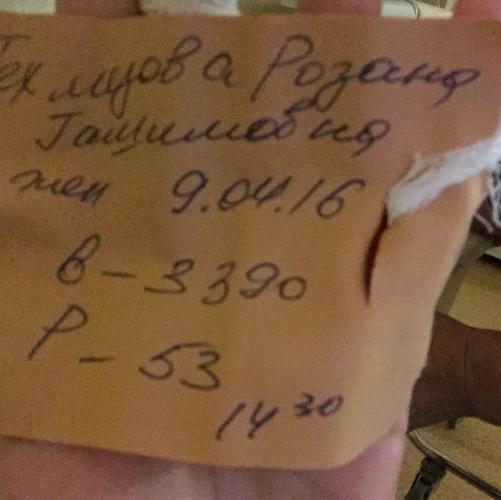 Розана
Гашимовна
жен 9.04.16
в - 3390
Р - 53
14 30